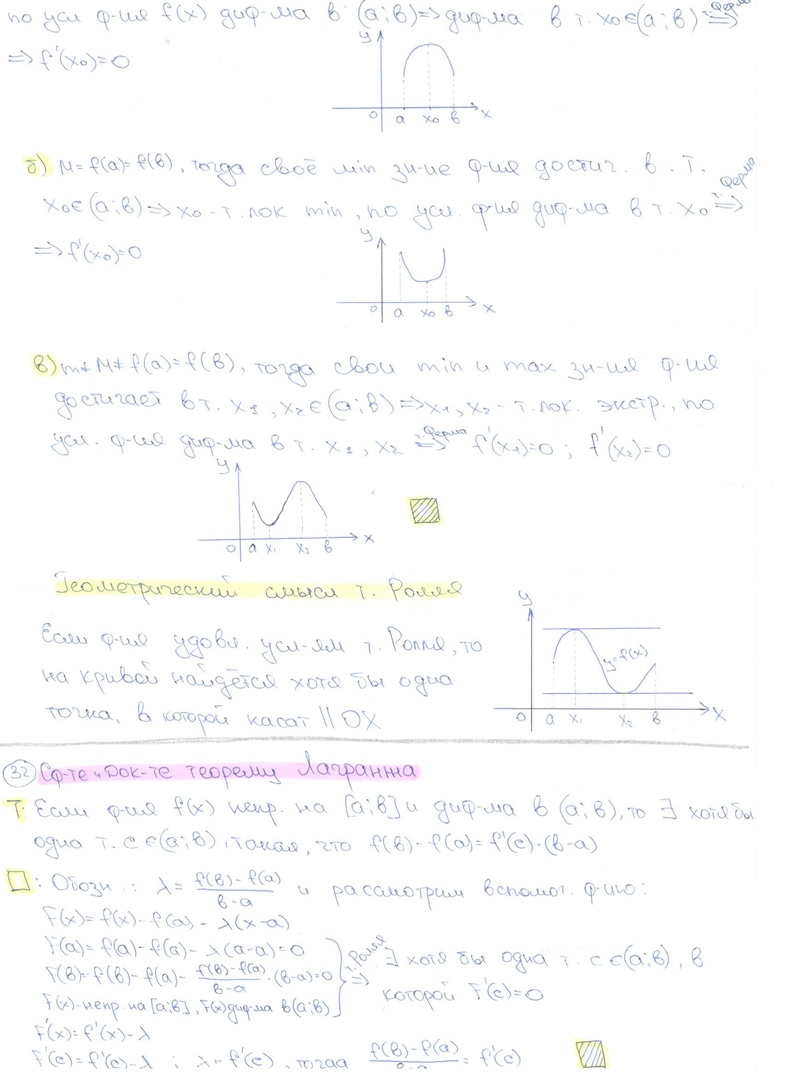 по усл ф-ия f(x) диф-ма в (a;b) => диф-ма в т. x₀∈(a;b) =т.Ферма=>
=> f'(x₀)=0
y
0 a x₀ b x
б) M=f(a)=f(b), тогда своё min зн-ие ф-ия достиг. в. т.
x₀∈(a;b) => x₀-т. лок min, по усл. ф-ия диф-ма в т. x₀ =т.Ферма=>
=> f'(x₀)=0
y
0 a x₀ b x
в) m≠M≠f(a)=f(b), тогда свои min и max зн-ия ф-ия
достигает в т. x₁, x₂∈(a;b) => x₁, x₂ - т. лок. экстр., по
усл. ф-ия диф-ма в т. x₁, x₂ =т.Ферма=> f'(x₁)=0 ; f'(x₂)=0
y
0 a x₁ x₂ b x
Геометрический смысл т. Ролля
Если ф-ия удовл. усл-ям т. Ролля, то
на кривой найдётся хотя бы одна
точка, в которой касат || OX
y
y=f(x)
0 a x₁ x₂ b x
32 Сф-те и Док-те теорему Лагранжа
Т: Если ф-ия f(x) непр. на [a;b] и диф-ма в (a;b), то ∃ хотя бы
одна т. c∈(a;b), такая, что f(b)-f(a)=f'(c)·(b-a)
□: Обозн.: λ = (f(b)-f(a))/(b-a) и рассмотрим вспомог. ф-ию:
F(x)=f(x)-f(a)-λ(x-a)
F(a)=f(a)-f(a)-λ(a-a)=0
F(b)=f(b)-f(a)-(f(b)-f(a))/(b-a)·(b-a)=0
F(x)-непр. на [a;b], F(x) диф-ма в (a;b)
=т.Ролля=> ∃ хотя бы одна т. c∈(a;b), в
которой F'(c)=0
F'(x)=f'(x)-λ
F'(c)=f'(c)-λ ; λ=f'(c), тогда (f(b)-f(a))/(b-a) = f'(c)